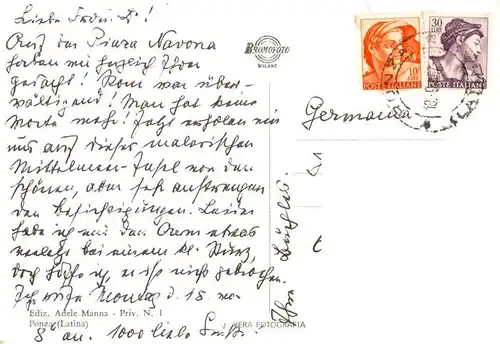 Liebe Frau D.!
Auf der Piazza Navona
haben wir herzlich Ihrer
gedacht! Rom war über-
wältigend! Man hat keine
Worte mehr! Jetzt erholen wir
uns auf dieser malerischen
Mittelmeer-Insel von den
schönen, aber sehr anstrengen-
den Besichtigungen. Leider
habe ich mir den Arm etwas
verletzt bei einem kl. Sturz,
doch hoffe ich, er ist nicht gebrochen.
Ich rufe Montag d. 18. 
an. 1000 liebe Grüße!
Ihre
BROMOFOTO
MILANO
10 LIRE
POSTE ITALIANE
30 LIRE
POSTE ITALIANE
Germania
Ediz. Adele Manna - Priv. N. 1
Ponza (Latina)
VERA FOTOGRAFIA